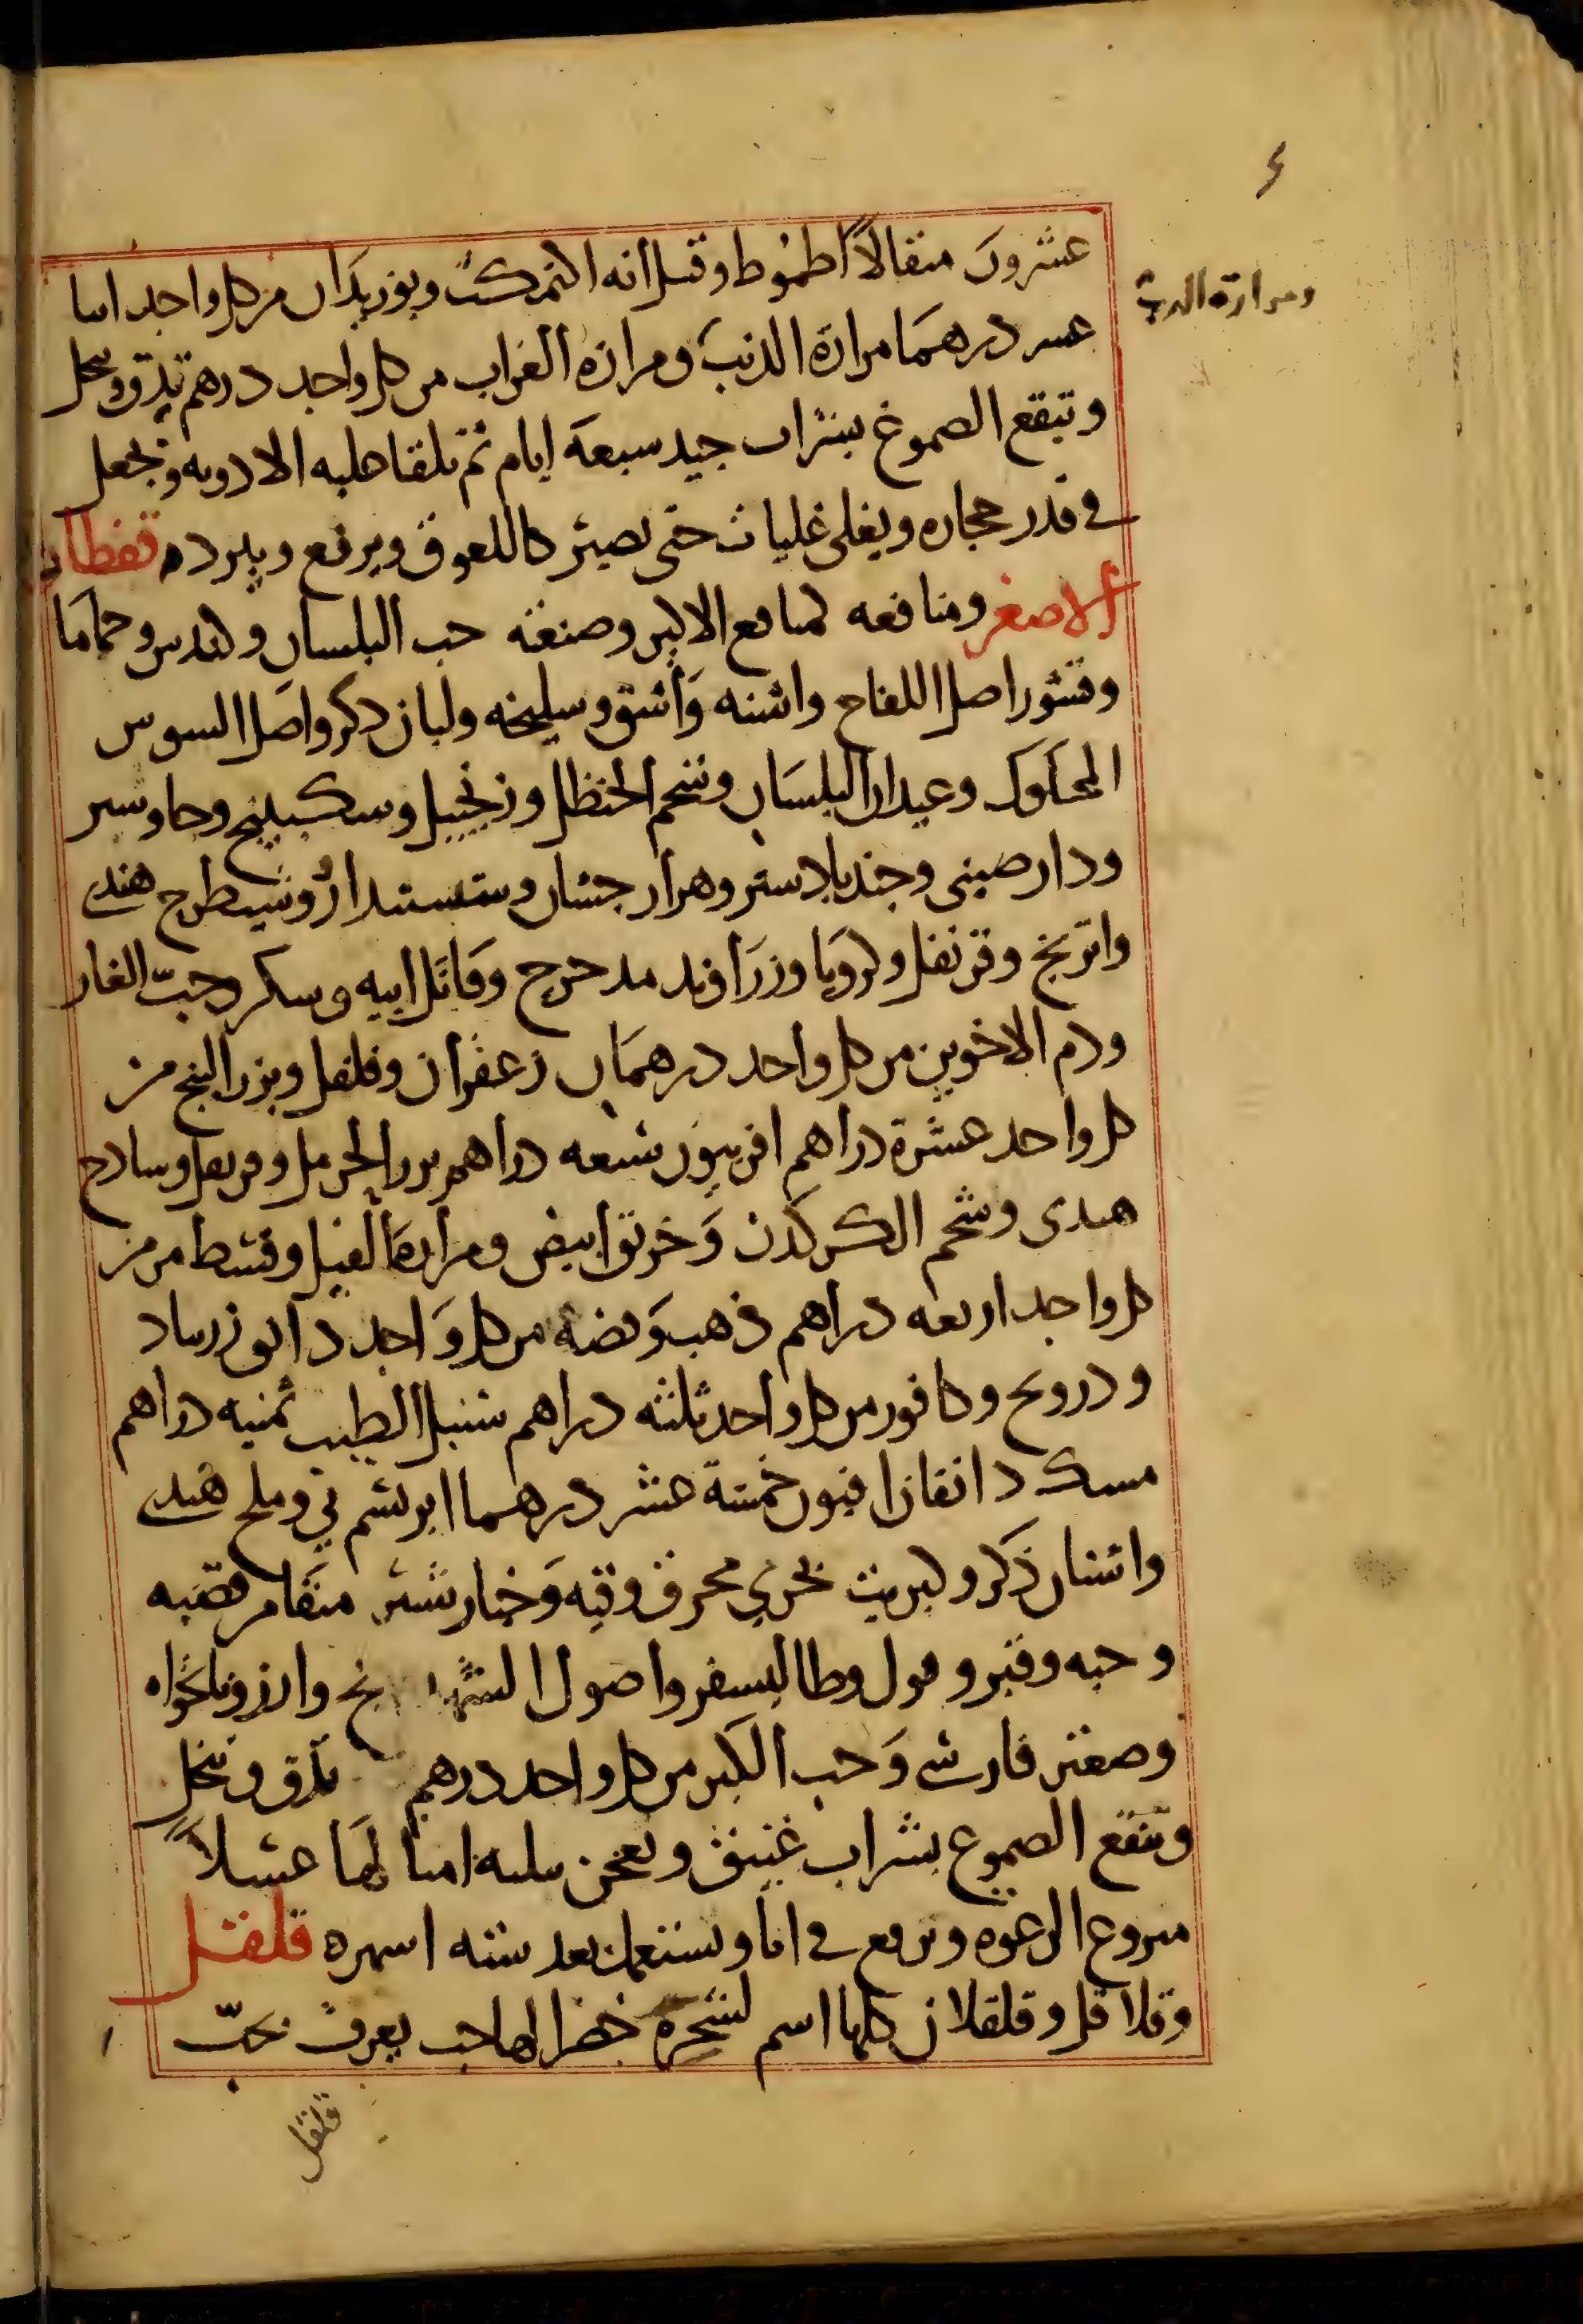 ع
ومرارة الدب
عشرون مثقالاً اطموط وقيل انه اكتمكت وبوزيدان من كل واحد اثنا
عشر درهما مرارة الذئب ومرارة الغراب من كل واحد درهم تدق وتنخل
وتنقع الصموغ بشراب جيد سبعة ايام ثم تلقا عليه الادويه وتجعل
في قدر حجاره ويغلى غليات حتى تصير كاللعوق ويرفع ويبرد قفطان
الاصغر ومنافعه كمنافع الاكبر وصنعته حب البلسان وكندس وحماما
وقشور اصل اللفاح واشنه وَاشق وسليخه ولبان ذكر واصل السوس
المحكوك وعيدان البلسان وشحم الحنظل وزنجبيل وسكبينج وجاوشير
ودارصيني وجندبادستر وهزارجشان وششبندان وشيطرج هندي
واترنج وقرنفل وكرويا وزرَاوند مدحرج وقاتل ابيه وسكر وحبّ الغار
ودم الاخوين من كل واحد درهمان زعفران وفلفل وبزر البنج من
كل واحد عشرة دراهم افربيون تسعه دراهم بزر الحرمل وقرنفل وسادج
هندى وشحم الكركدن وَخربق ابيض ومرارة الفيل وقسط مر من
كل واحد اربعه دراهم ذهب وَفضة من كل وَاحد دانق زرنباد
ودرونج وكافور من كل واحد ثلثه دراهم سنبل الطيب ثمنيه دراهم
مسك دانقان افيون خمسة عشر درهما ابريشم ني وملح هندي
واشنان ذَكر وكبريت بحري محرق وقنه وَخيارشنبر منقا من قصبه
وحبه وقير وفول وطاليسفر واصول الشهدانج وارز ونانخواه
وصعتر فارسي وَحب الكبر من كل واحد درهم تدق وتنخل
وتنقع الصموغ بشراب عتيق وتعجن بثلثه امثالها عسلاً
منزوع الرغوه وترفع في انا وتستعمل بعد سته اشهره قلقل
وقلاقل وقلقلان كلها اسم لشجرة خضرا لها حب يعرف بحبّ
قلقل